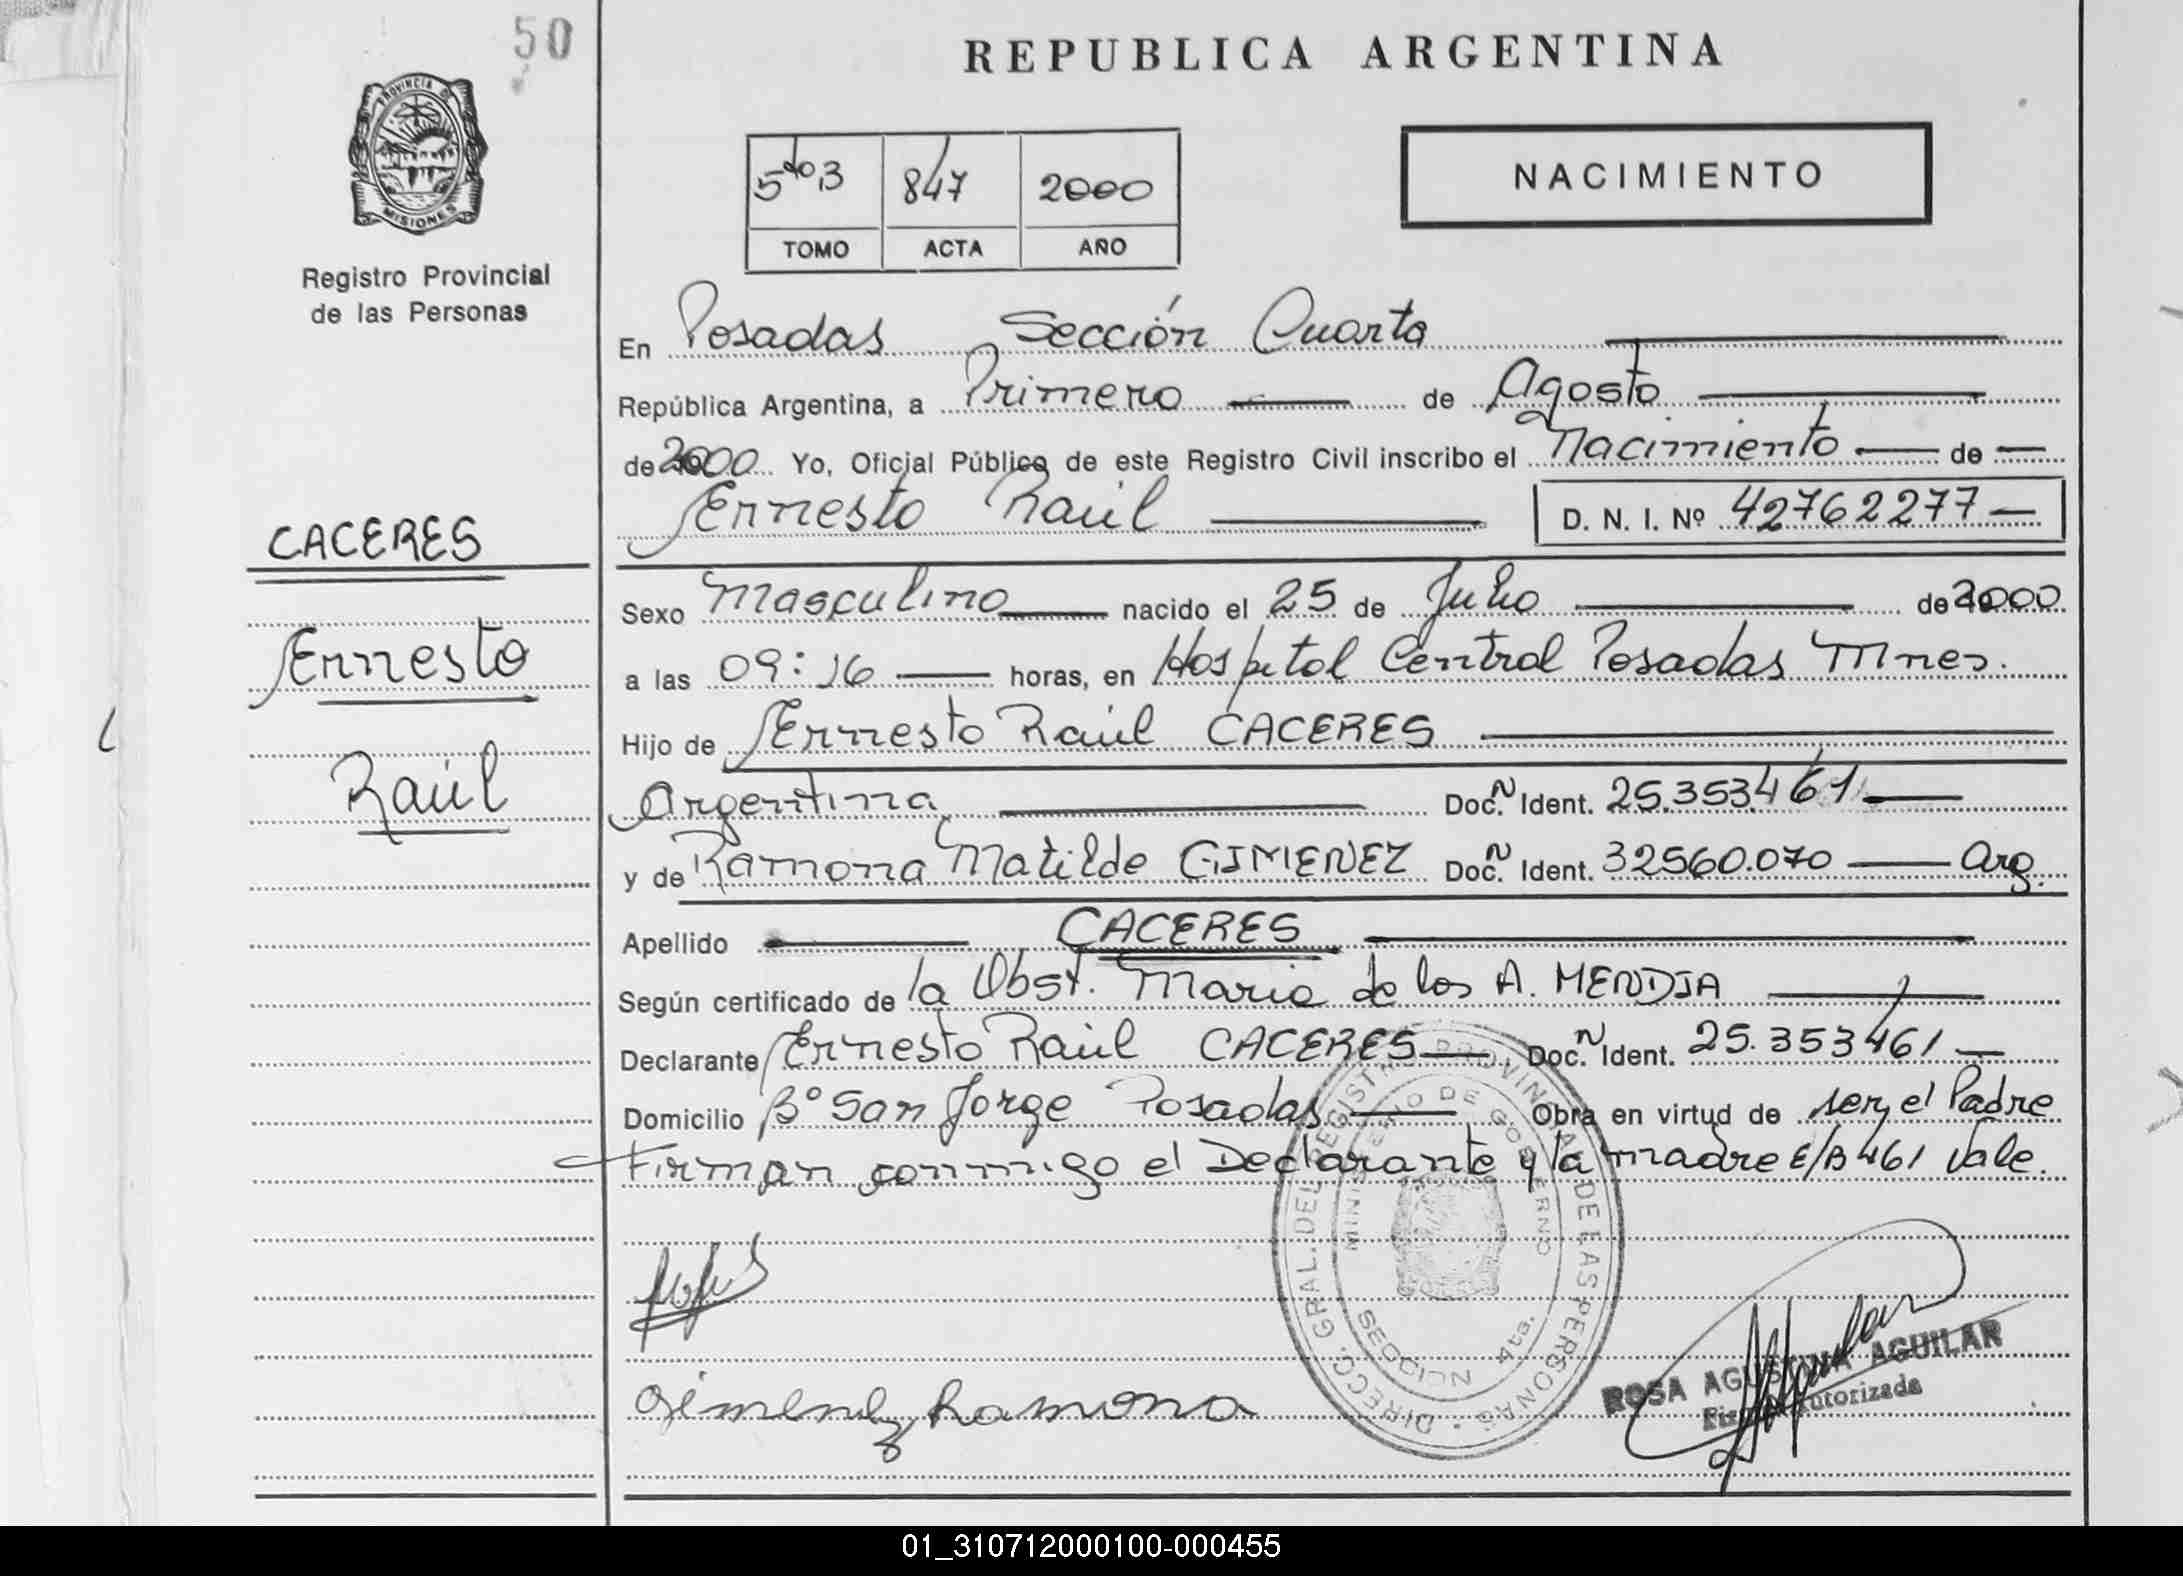 50
REPUBLICA ARGENTINA
PROVINCIA D
MISIONES
Registro Provincial
de las Personas
847 2000
TOMO ACTA AÑO
NACIMIENTO
En Posadas Sección Cuarta
República Argentina, a Primero de Agosto
de 2000 Yo, Oficial Público de este Registro Civil inscribo el Nacimiento de
Ernesto Raúl D. N. I. Nº 42762277
CACERES
Ernesto
Raúl
Sexo Masculino nacido el 25 de Julio de 2000
a las 09:16 horas, en Hospital Central Posadas Mnes.
Hijo de Ernesto Raúl CACERES
Argentina Doc. N Ident. 25.353.461
y de Ramona Matilde GIMENEZ Doc. N Ident. 32560.070 Arg.
Apellido CACERES
Según certificado de la Obst. Maria de los A. MENDIA
Declarante Ernesto Raúl CACERES Doc. N Ident. 25.353461
Domicilio Bº San Jorge Posadas Obra en virtud de ser el Padre
Firman conmigo el Declarante y la madre E/B 461 Vale.
DIRECC. GRAL. DEL REGISTRO PROVINCIAL DE LAS PERSONAS
MINISTERIO DE GOBIERNO
SECCION 4ta.
Gimenez Ramona
ROSA AGUSTINA AGUILAR
Firma Autorizada
01_310712000100-000455